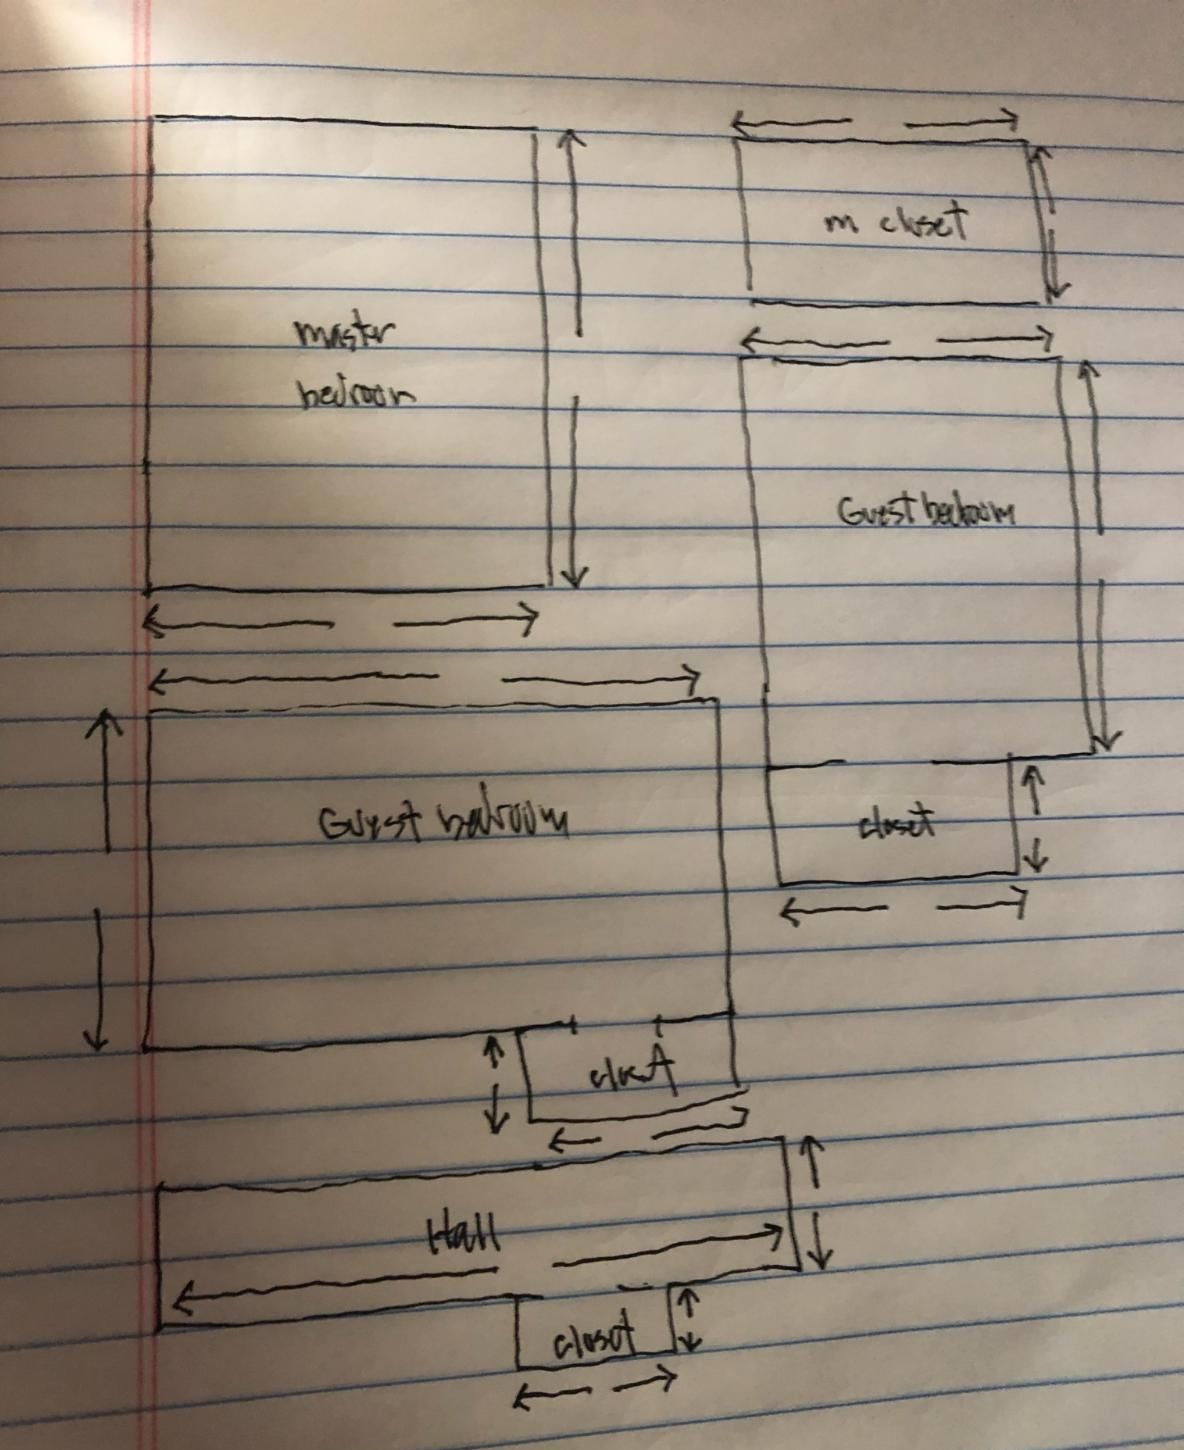 m closet
master
bedroom
Guest bedroom
Guest bedroom
closet
closet
Hall
closet